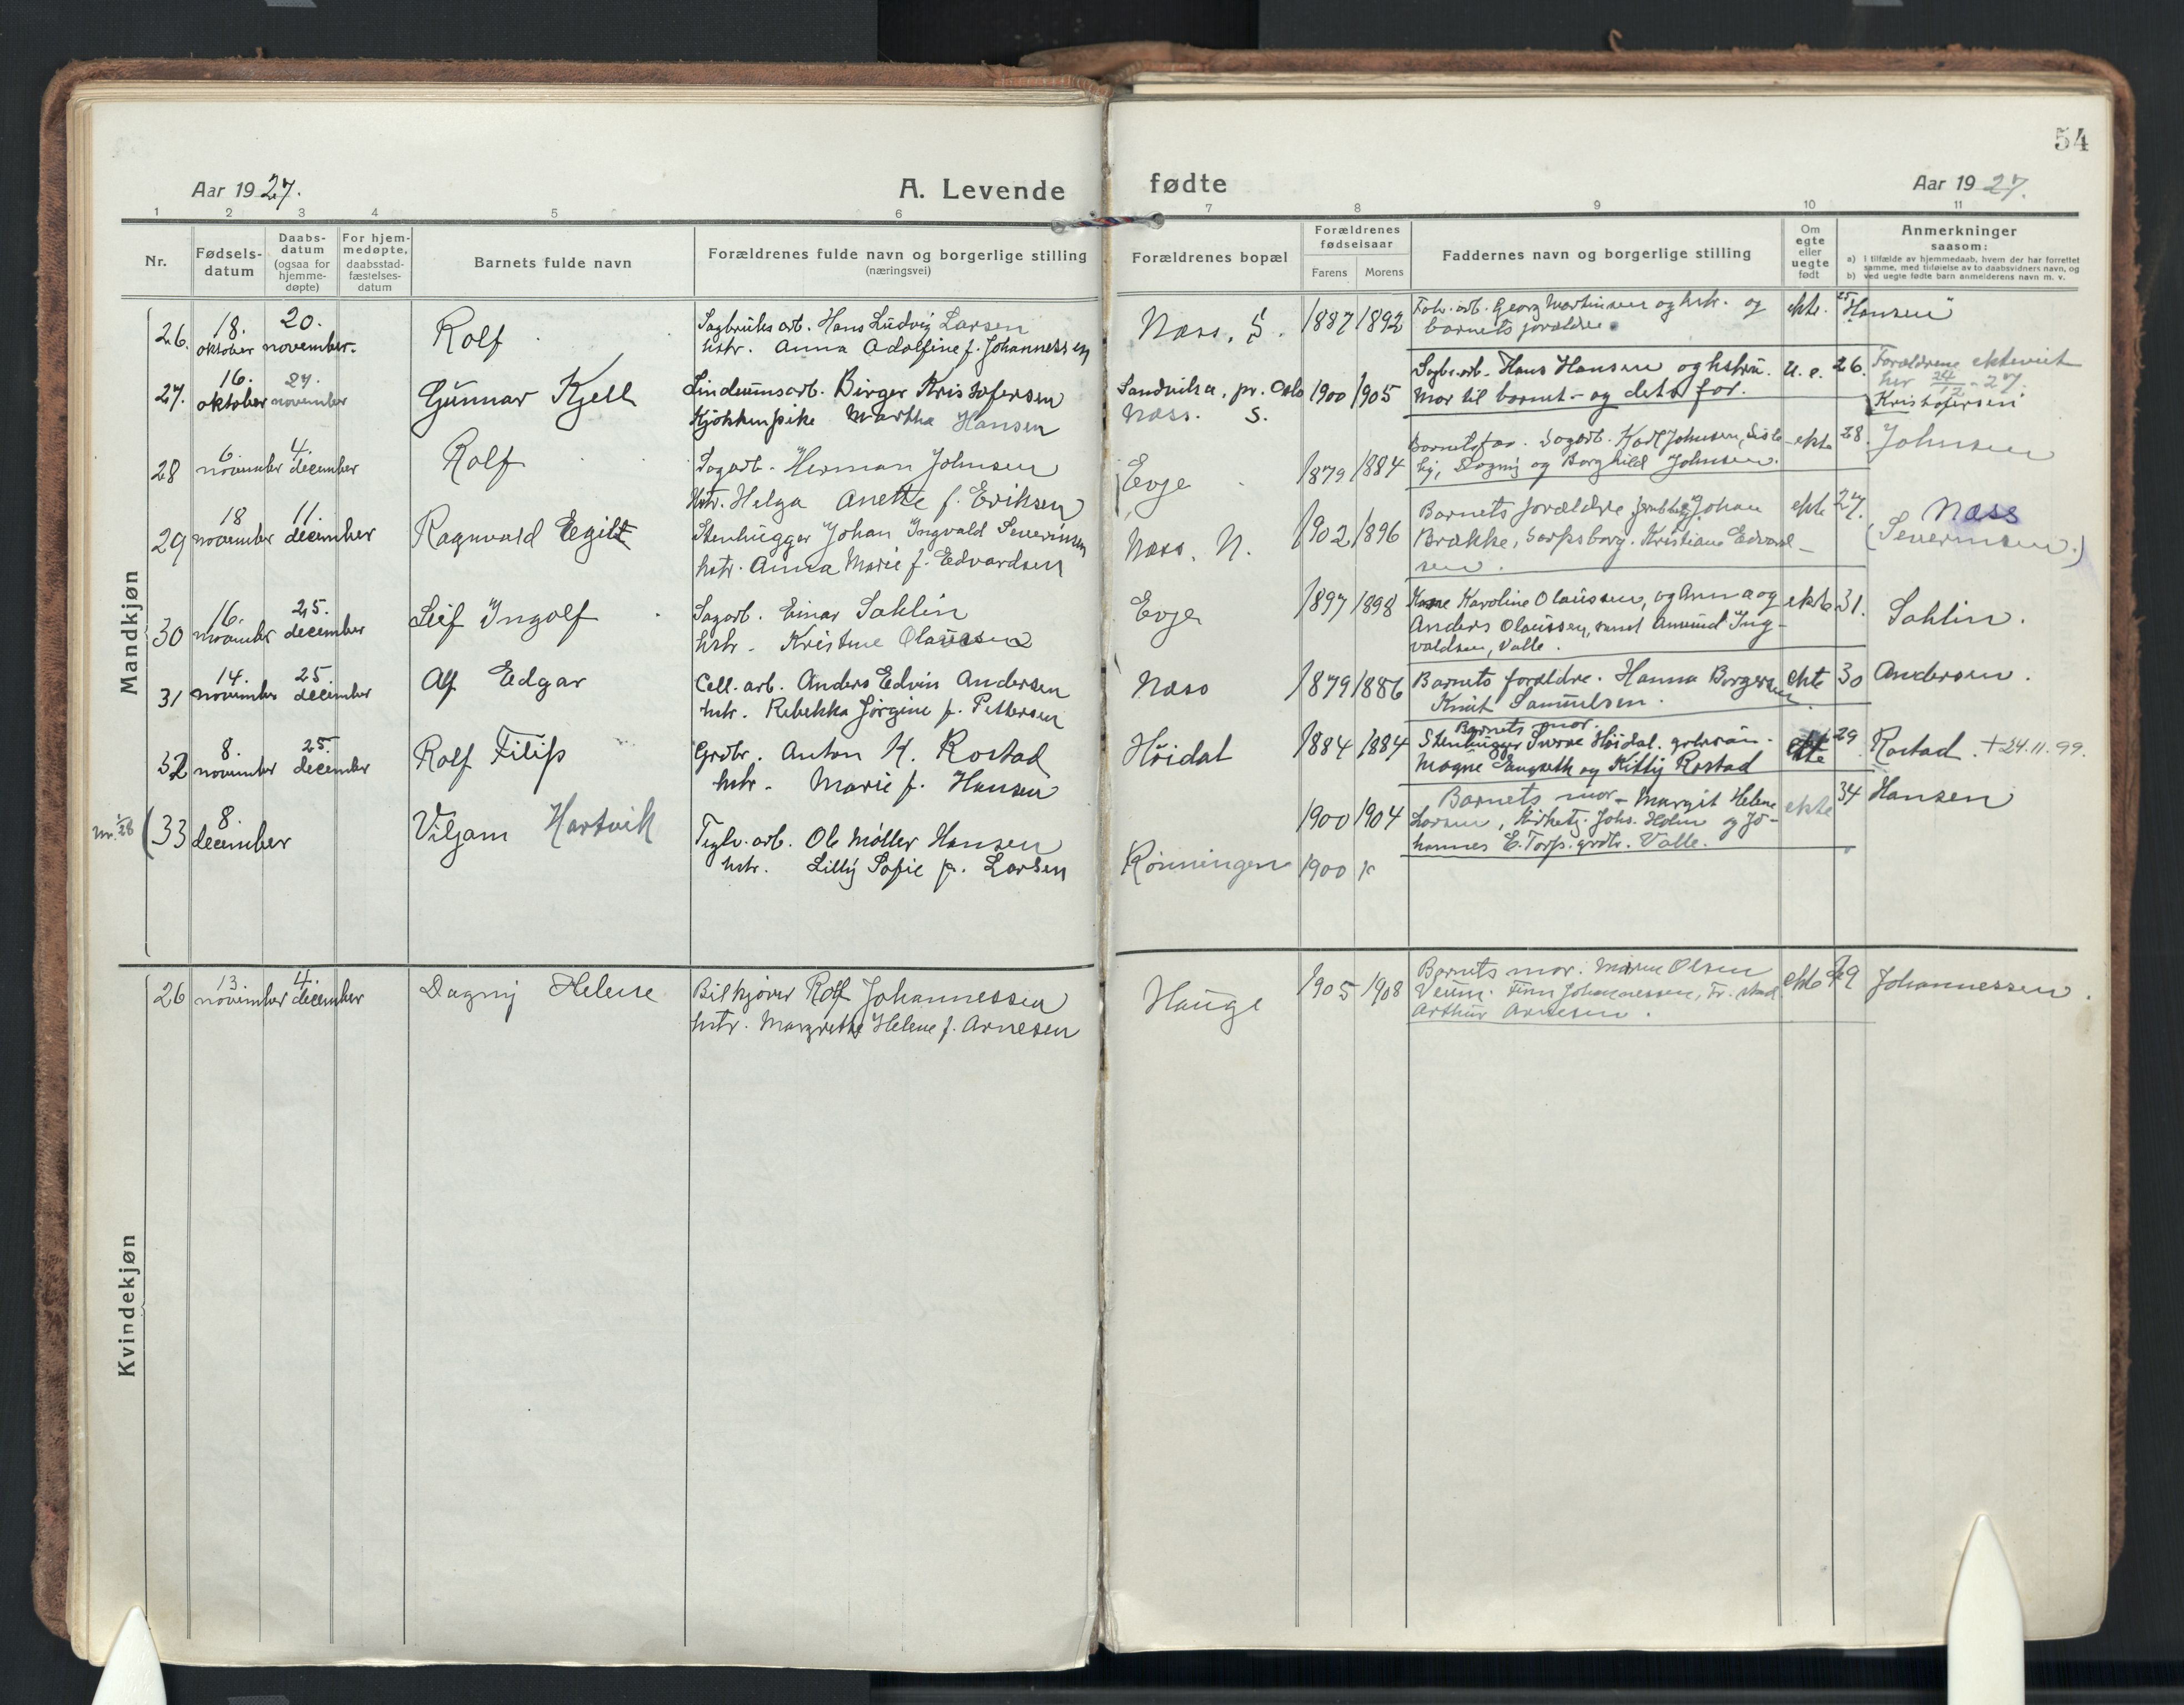 54
Aar 1927.
A. Levende
fødte
Aar 1927.
1 2 3 4 5 6 7 8 9 10 11
Nr.
Fødsels-
datum
Daabs-
datum
(ogsaa for
hjemme-
døpte)
For hjem-
medøpte,
daabsstad-
fæstelses-
datum
Barnets fulde navn
Forældrenes fulde navn og borgerlige stilling
(næringsvei)
Forældrenes bopæl
Forældrenes
fødselsaar
Farens
Morens
Faddernes navn og borgerlige stilling
Om
egte
eller
uegte
født
Anmerkninger
saasom:
a) I tilfælde av hjemmedaab, hvem der har forrettet
samme, med tilføielse av to daabsvidners navn, og
b) ved uegte fødte barn anmelderens navn m. v.
Mandkjøn
26. 18. oktober 20. november.
Rolf
Sagbruks arb. Hans Ludvig Larsen
hstr. Anna Adolfine f. Johannessen
Næss, S. 1887 1892
Fabr. arb. Georg Martinsen og hstr. og
barnets forældre.
ekte. 25. Hansen
27. 16. oktober 27. november
Gunnar Kjell
Lindeumsarb. Birger Kristofersen
Kjøkkenpike Martha Hansen
Sandvika, pr. Oslo
Næss. S.
1900 1905
Sagbr. arb. Hans Hansen og hstru.
Mor til barnet - og dets far.
u. e. 26.
Forældrene ekteviet
her 24/12 - 27.
Kristofersen
28 6. november 4. december
Rolf
Sagarb. Herman Johnsen
hstr. Helga Anette f. Eriksen
Evje 1879 1884
Barnets far. Sagarb. Karl Johnsen,
Dagny og Borghild Johnsen.
ekte 28. Johnsen
29 18 november 11. december
Ragnvald Egil
Stenhugger Johan Ingvald Severinsen
hstr. Anna Marie f. Edvardsen
Næss. N. 1902 1896
Barnets forældre Johan
Brække, Sarpsborg. Kristiane Edvard-
sen.
ekte 27. Næss
(Severinsen.)
30 16. november 25. december
Leif Ingolf
Sagarb. Einar Sahlin
hstr. Kristine Olaussen
Evje 1897 1898
Karoline Olaussen, og Anna og
Anders Olaussen, samt Amund Ing-
valdsen, Valle.
ekte 31. Sahlin.
31 14. november 25. december
Alf Edgar
Cell. arb. Anders Edvin Andersen
hstr. Rebekka Jørgine f. Pettersen
Næss 1879 1886
Barnets forældre. Hanna Borgersen
Knut Samuelsen.
ekte 30 Andersen.
32 8. november 25. december
Rolf Filip
Grdbr. Anton K. Rostad
hstr. Marie f. Hansen
Høidal 1884 1884
Barnets mor.
Stenhugger Sverre Høidal.
Magne og Kitty Rostad
ekte 29. Rostad. + 24.11.99.
nr. 1/28
33 8. december
Viljam Hartvik
Teglv. arb. Ole Møller Hansen
hstr. Lilly Sofie f. Larsen
Rønningen 1900
1900 1904
Barnets mor - Margit Helene
Larsen, Kirketj. Johs. Holm og Jo-
hannes E. Torp. grdbr. Valle.
ekte 34 Hansen
Kvindekjøn
26 13. november 4. december
Dagny Helene
Bilkjører Rolf Johannessen
hstr. Margrethe Helene f. Arnesen
Hauge 1905 1908
Barnets mor. Maren Olsen
Veum. Finn Johannessen, Fr. stad.
Arthur Arnesen.
ekte 29 Johannessen.